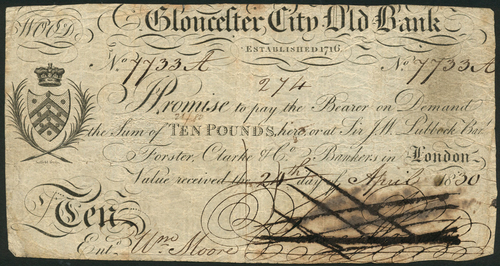 Gloucester City Old Bank
ESTABLISHED 1716.
No. 7733 A No. 7733 A
274
Promise to pay the Bearer on Demand
the Sum of TEN POUNDS, here, or at Sir J.W. Lubbock Bar.t
Forster, Clarke & Co. Bankers in London
Value received the 24th day of April 1830
Ten
Ent.d Wm Moore